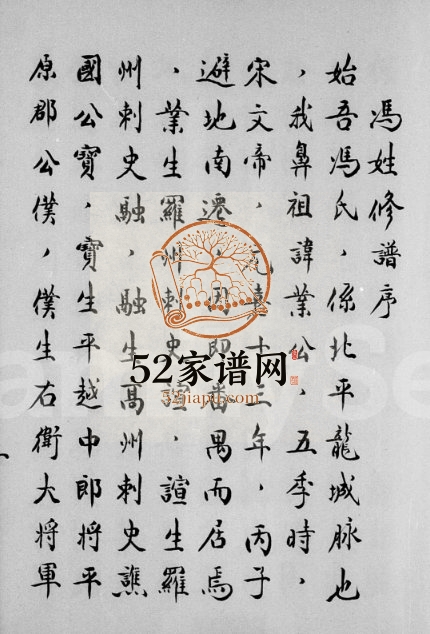 馮姓修譜序
始吾馮氏，係北平龍城脉也
，我鼻祖諱業公，五季時，
宋文帝，元嘉十三年，丙子
避地南遷，因即番禺而居焉
，業生羅州刺史諠，諠生羅
州刺史融，融生高州刺史譙
國公寶，寶生平越中郎將平
原郡公僕，僕生右衛大將軍
52家谱网
52jiapu.com